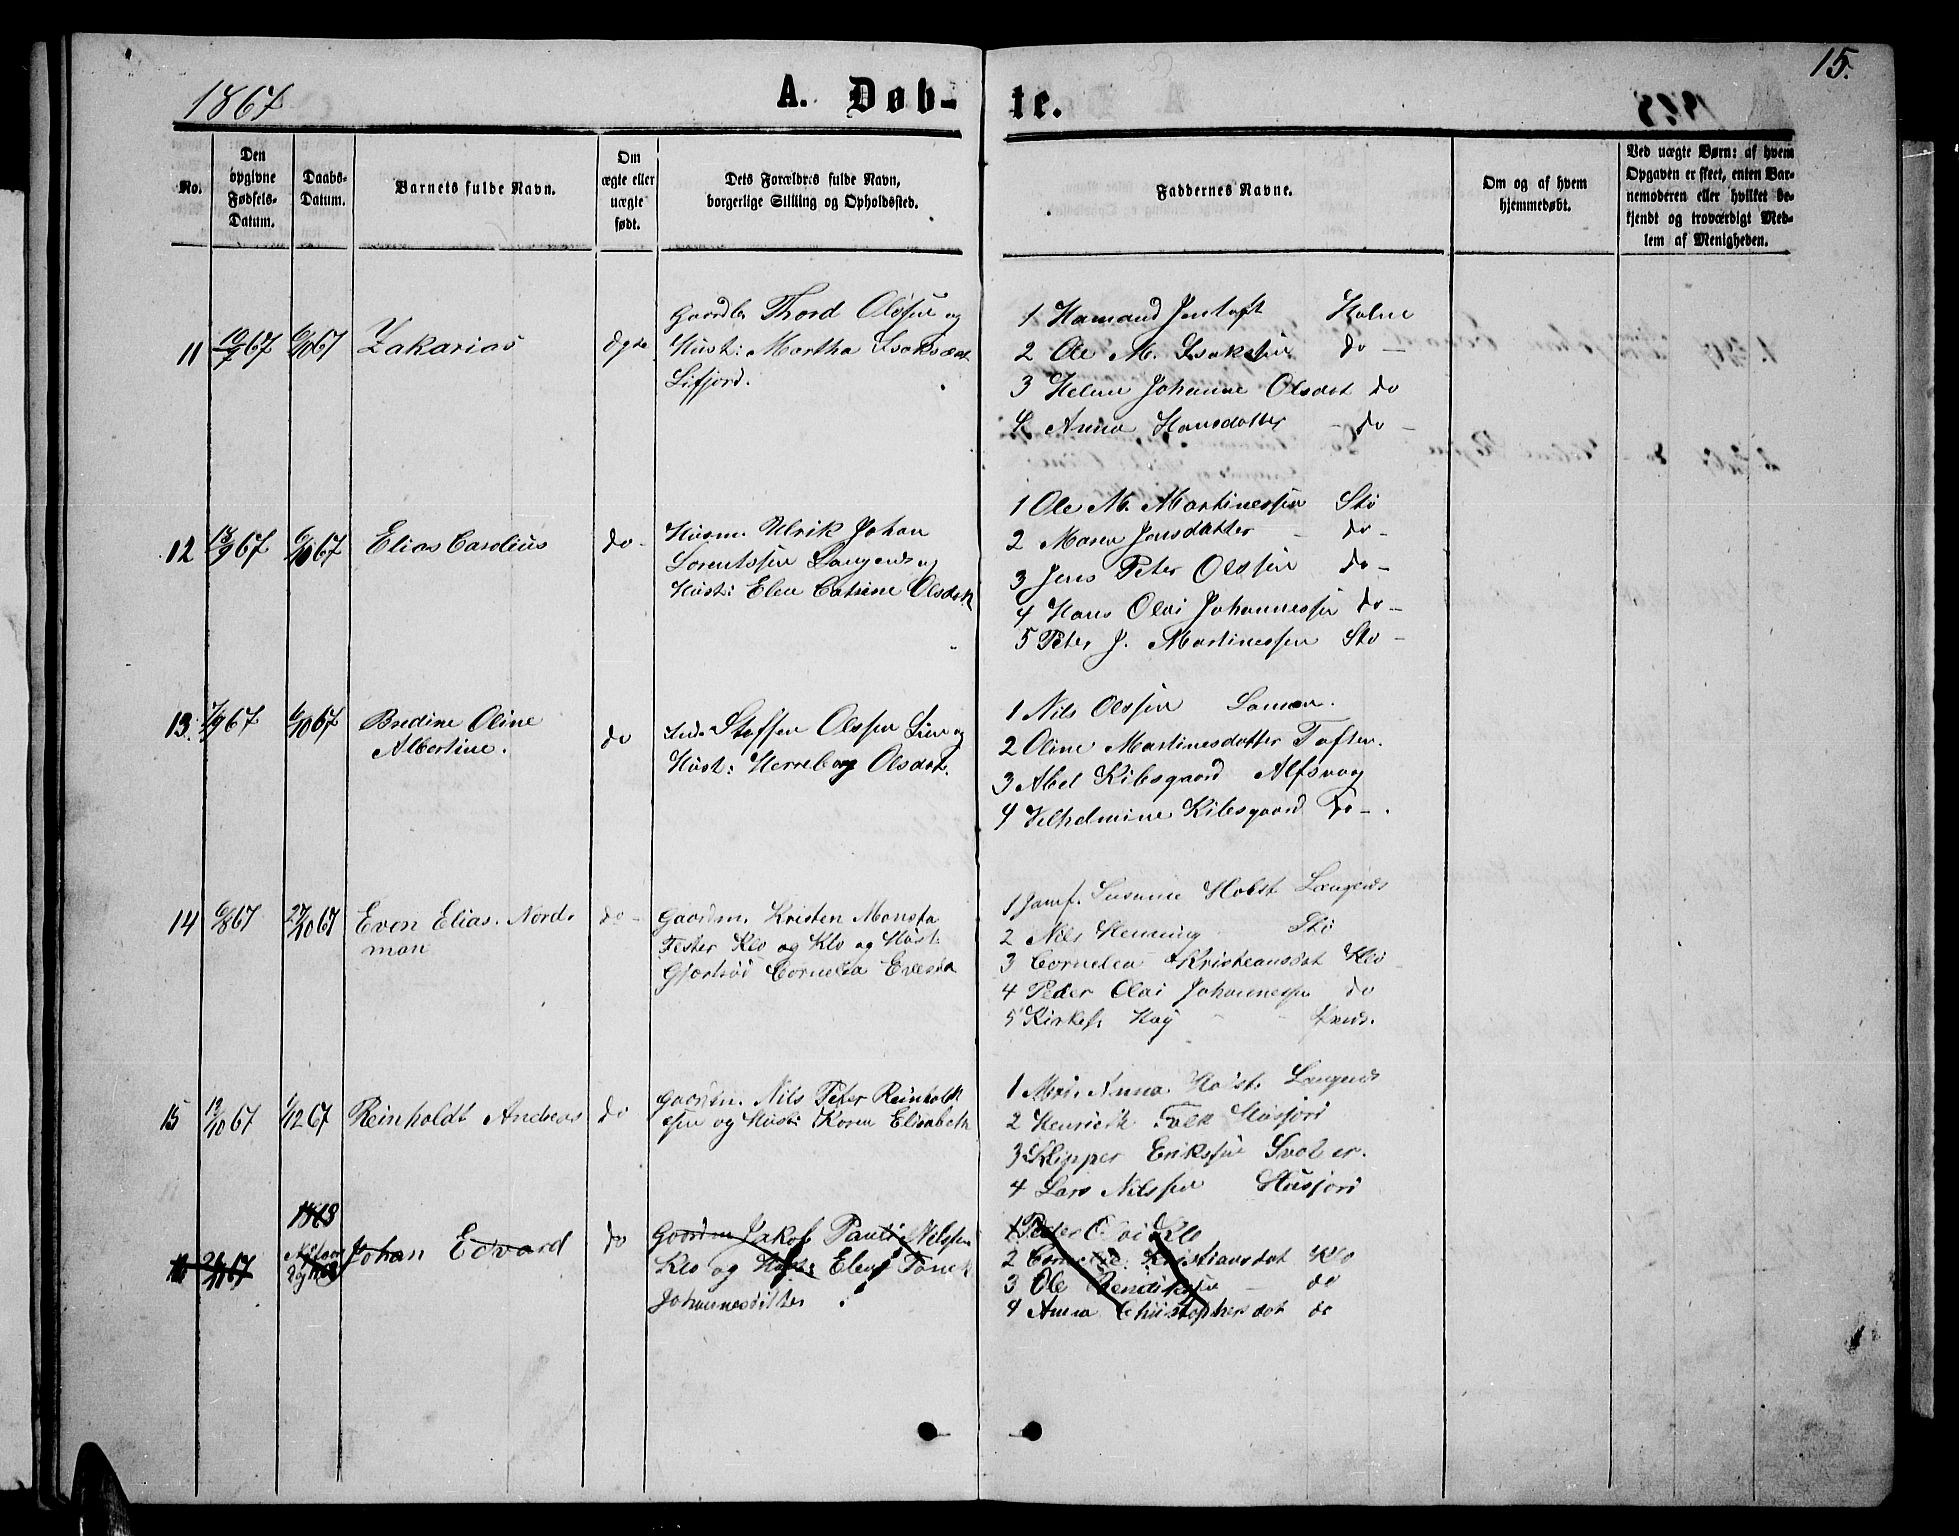 15.
1867
A. Døb-
te.
No.
Den
opgivne
Fødsels-
Datum.
Daabs-
Datum.
Barnets fulde Navn.
Om
ægte eller
uægte
født.
Dets Forældres fulde Navn,
borgerlige Stilling og Opholdssted.
Faddernes Navne.
Om og af hvem
hjemmedøbt.
Ved uægte Børn: af hvem
Opgaven er skeet, enten Bar-
nemoderen eller hvilket be-
kjendt og troværdigt Med-
lem af Menigheden.
11 10/7 67 6/10 67 Zakarias ægte
Gaardbr Thord Olsen og
Hust: Martha Isaksdat
Lifjord.
1 Hamand Jentoft Holm
2 Ole M. Isaksen do -
3 Helene Johanne Olsdat do
4 Anna Hansdatter do -
12 13/9 67 6/10 67 Elias Carolius do -
Husm. Ulrik Johan
Lorentssen Langenes og
Hust: Elen Catrine Olsdat
1 Ole M. Martinessen Stø
2 Maren Jensdatter do -
3 Jens Peter Olssen do -
4 Hans Olai Johannessen do -
5 Peter J. Martinessen Stø -
13. 7/9 67 6/10 67 Bredine Oline
Albertine. do
Steffen Olssen og
Hust: Herreborg Olsdat.
1 Nils Olssen
2 Oline Martinesdatter Toften.
3 Abel Kibsgaard Alfsvag
4 Vilhelmine Kibsgaard do - .
14 6/8 67 27/10 67 Even Elias Nord-
man do -
Gaardm. Kristen
Klo og Hust:
Cornelia
1 Jomf. Susanne Holst Langenes
2 Nils Henning Stø
3 Cornelia Kristiansdat Klo
4 Peder Olai Johannessen do
5 Kirkes.
15 12/10 67 1/12 67 Reinholdt Andreas do
Gaardm. Nils Peter Reinholdt
sen og Hust: Karen Elisabeth
1 Anna Holst Langenes
2 Henrik Falk
3 Klipper Erikssen
4 Lars Nilssen
1868
16 67 Johan Edvard do
Gaardm Jakob Pauli Nilssen
Klo og Hust: Elen
Johannesdatter
1 Peder Olai Klo
2 Cornelia Kristiansdat Klo
3 Ole Bendiksen - do
4 Anna Christophersdat do